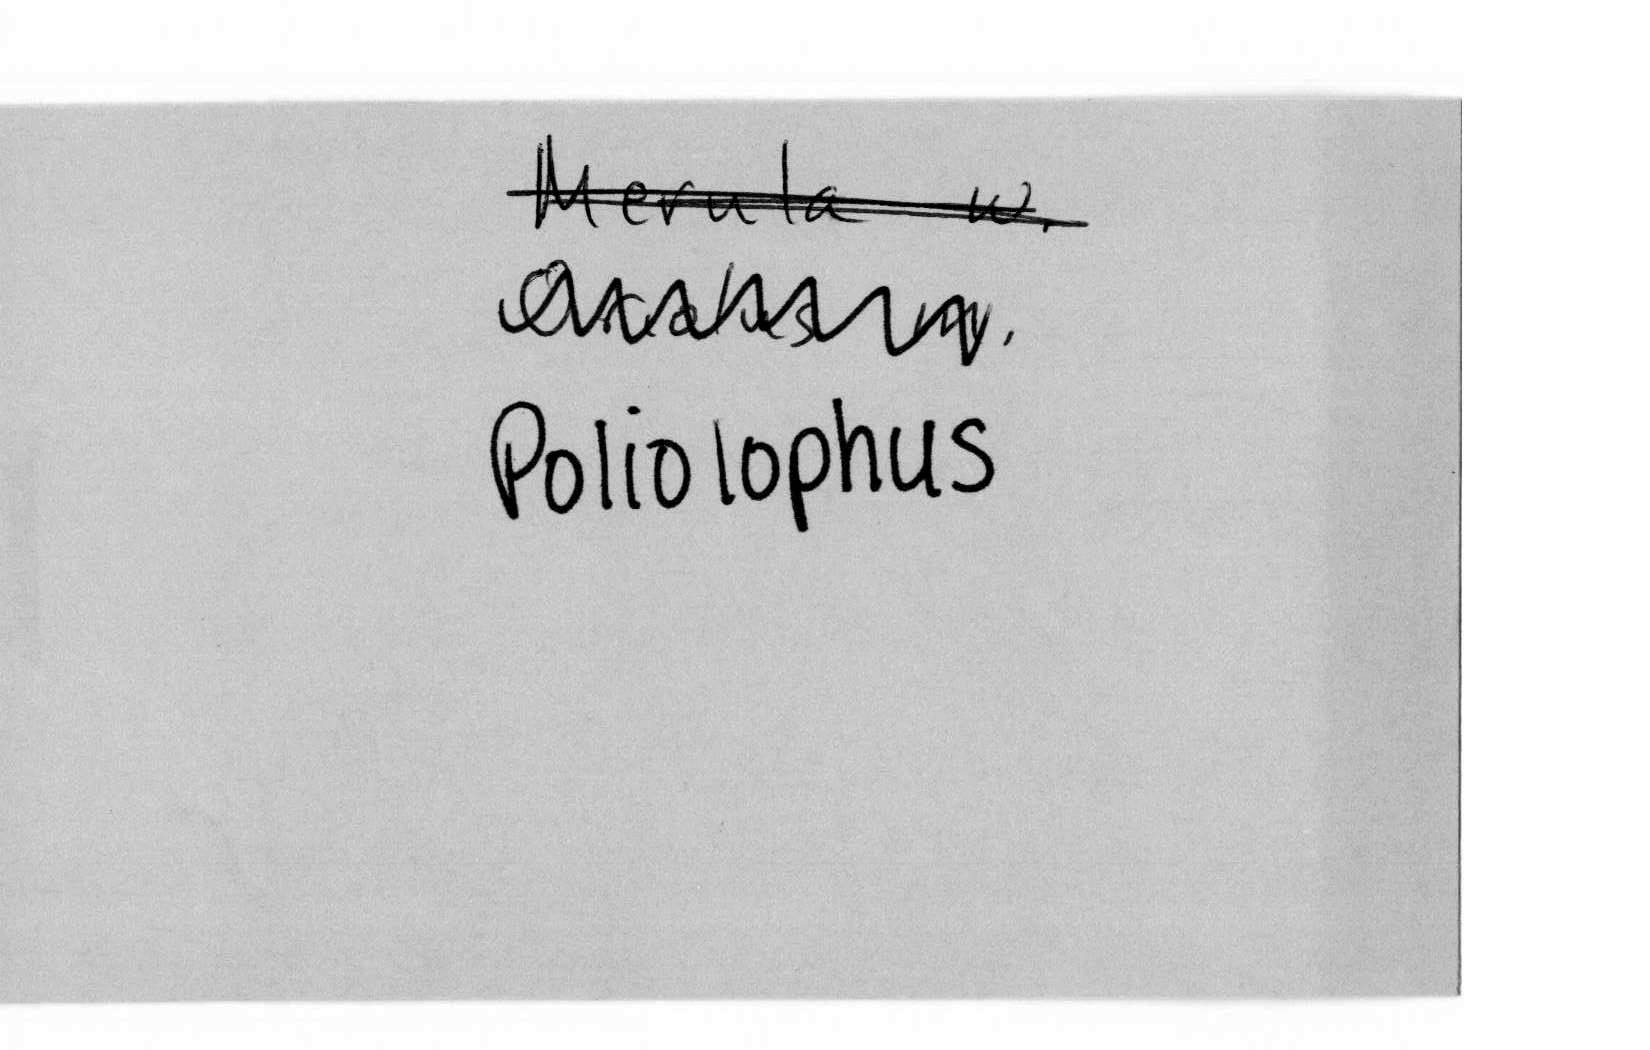 Merula w.
Poliolophus